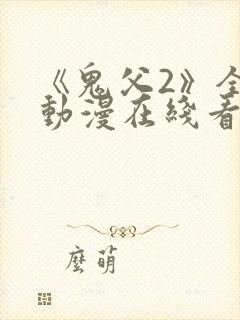 《鬼父2》全
動漫在綫看
麼萌